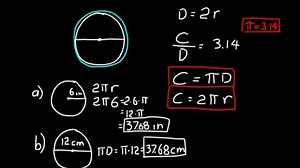 D = 2r
π = 3.14
C/D = 3.14
C = πD
C = 2πr
a) 6in 2πr
2π6 = 2·6·π
= 12·π
= 37.68 in
b) 12cm πD = π·12 = 37.68cm